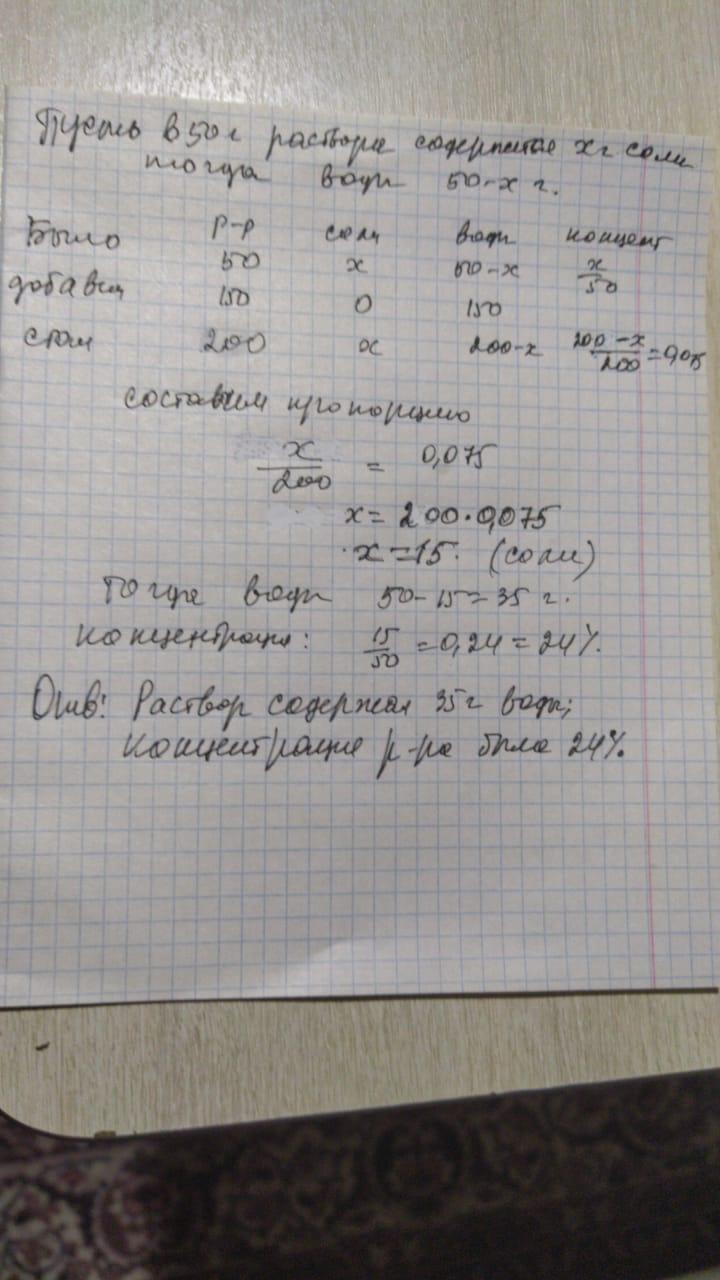 Пусть в 50 г раствора содержится x г соли
тогда воды 50-x г.
Было р-р соли воды концент
50 x 50-x x/50
добавили 150 0 150
стал 200 x 200-x 200-x/200=0,075
составим пропорцию
x/200 = 0,075
x=200·0,075
x=15. (соли)
тогда воды 50-15=35 г.
концентрация: 15/50=0,24=24%.
Отв: Раствор содержал 35 г воды;
концентрация р-ра была 24%.